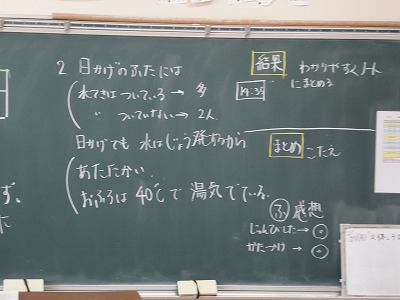 2 日かげのふたには
水てきはついている→ 多
〃 ついていない→ 2人
日かげでも 水はじょう発するから
あたたかい
おふろは40℃で湯気でている。
結果 わかりやすくノート
にまとめる
まとめ こたえ
ふ 感想
じゅんびした→
かたづけ→